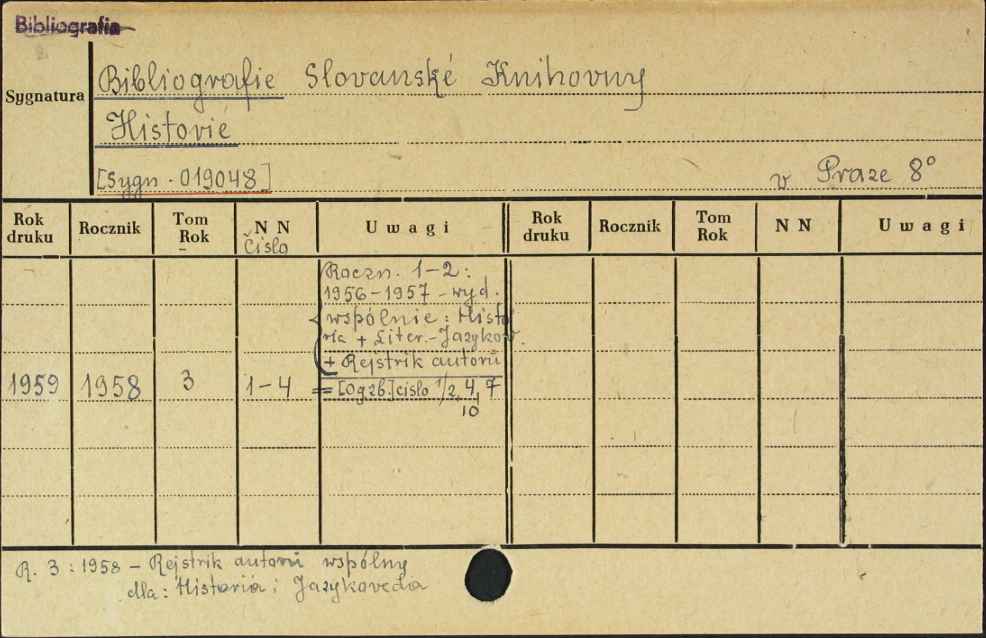 Bibliografia
Sygnatura
Bibliografie Slovanské Knihovny
Historie
[Sygn. 019048]
v Praze 8°
Rok druku
Rocznik
Tom Rok
NN
Čislo
Uwagi
Rok druku
Rocznik
Tom Rok
NN
Uwagi
Roczn. 1-2:
1956-1957 - wyd.
wspólnie: Histo
ria + Liter.-Jazykov.
+ Rejstrik autorů
1959 1958 3 1-4 = [Ogzb.] cislo 1/2, 4, 7
10
R. 3: 1958 - Rejstrik autorů wspólny
dla: Historia i Jazykoveda